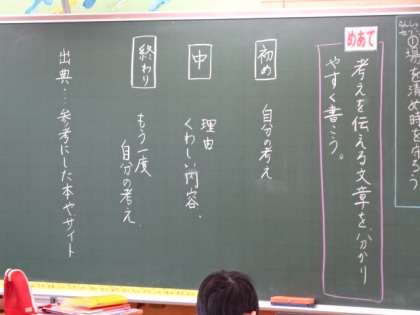 めあて
考えを伝える文章を、分かり
やすく書こう。
初め
自分の考え
中
理由
くわしい内容、
終わり
もう一度
自分の考え
出典…参考にした本やサイト